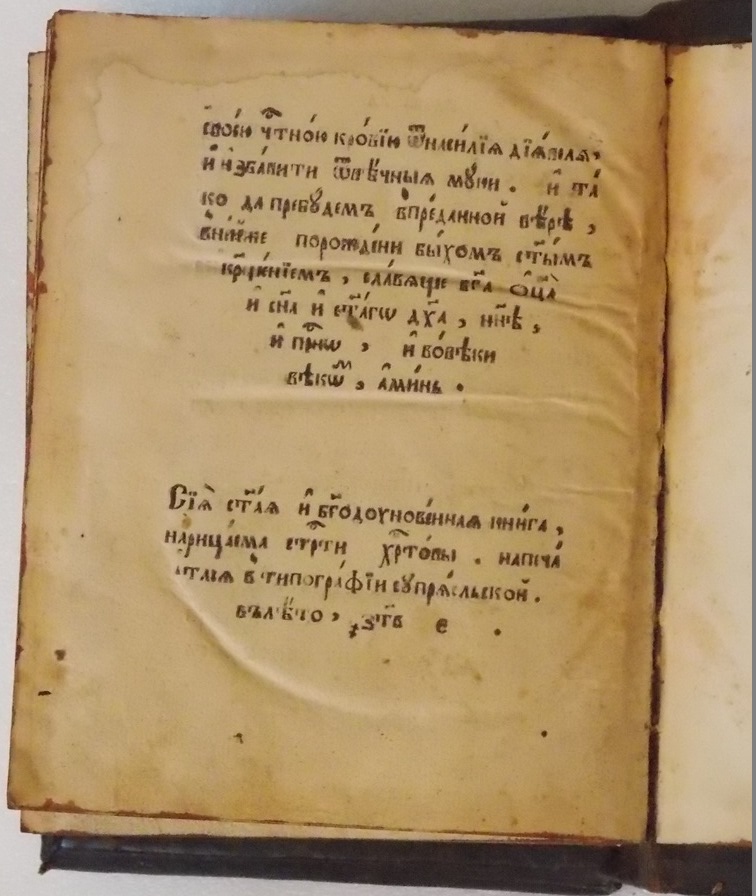 свое́ю чⷭ҇тно́ю кро́вїю ѿнаси́лїѧ дїѧ́вола,
и҆ и҆зба́вити ѿвѣ́чныѧ мꙋ́ки . и҆ та́
ко да пребꙋ́демъ впре́данной вѣ́рѣ ,
вне́йже порожде́ни бы́хомъ ст҃ы́мъ
кр҃ще́нїемъ , сла́вѧще бг҃а ѻ҆ц҃а̀
и҆ сн҃а и҆ ст҃а́гѡ дх҃а , нн҃ѣ ,
и҆ прⷭ҇нѡ , и҆ во́вѣки
вѣкѡⷨ , а҆ми́нь .
Сїѧ̀ ст҃а́ѧ и҆ бг҃одоухнове́ннаѧ кни́га ,
нарица́ема стрⷭ҇ти хрⷭ҇то́вы . напеча́
таⷭ҇ѧ в̾типогра́фїи сꙋпрѧ́сльской .
вълѣ́то , ҂зт҃в є .